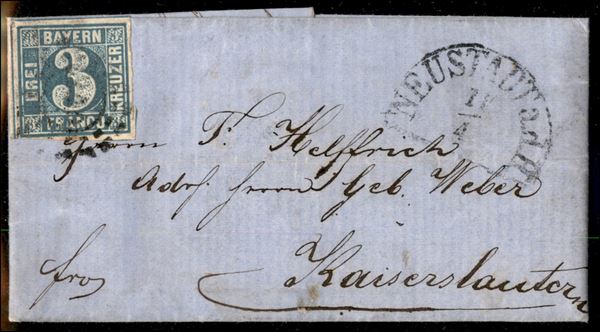 BAYERN
DREI
3
KREUZER
FRANCO
NEUSTADT a.d.H.
11
4
Herrn F. Helffrich
Adr. Herrn Geb. Weber
fro
Kaiserslautern